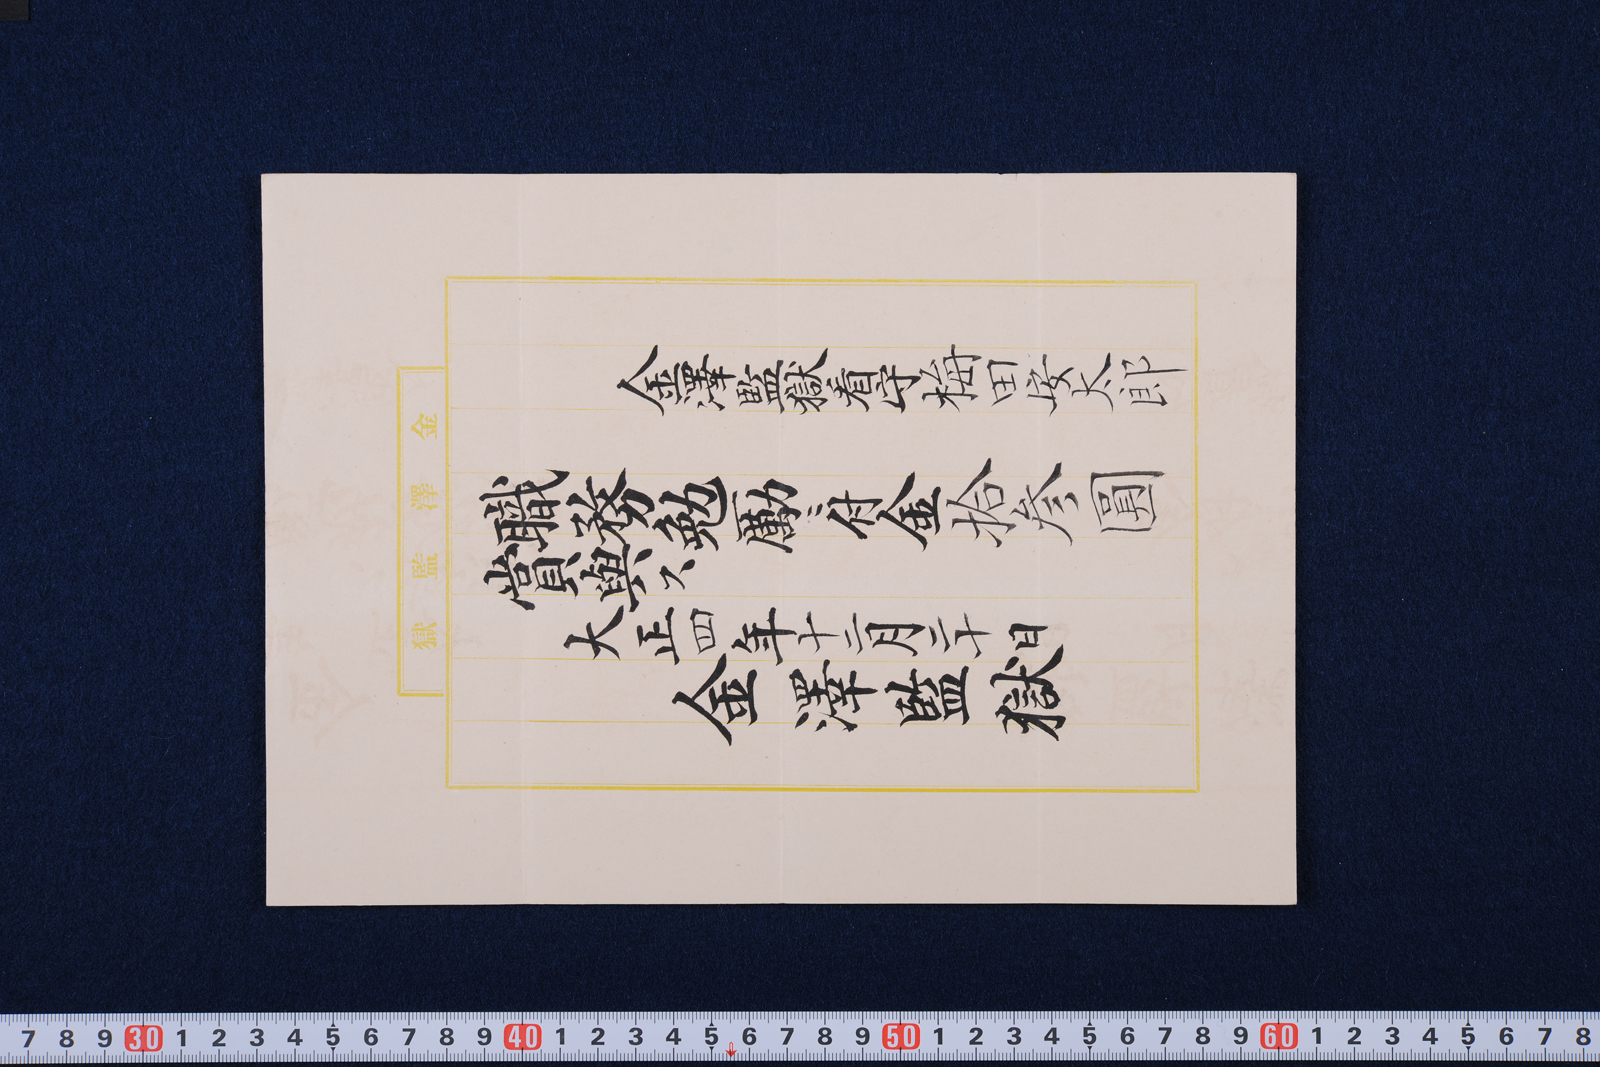 金澤監獄看守梅田安太郎
職務勉勵ニ付金拾参圓
賞與ス
大正四年十二月二十日
金澤監獄
金澤監獄
7 8 9 30 1 2 3 4 5 6 7 8 9 40 1 2 3 4 5 6 7 8 9 50 1 2 3 4 5 6 7 8 9 60 1 2 3 4 5 6 7 8